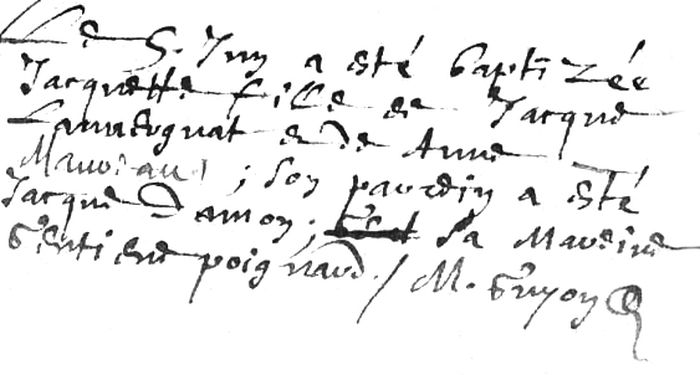 Le 5. Juin a esté baptizée
Jacquette fille de Jacque
Lamaignat et de Anne
Moreau ; son pardin a esté
Jacque Damon ; sa mareine
poignaud / M. Guyon